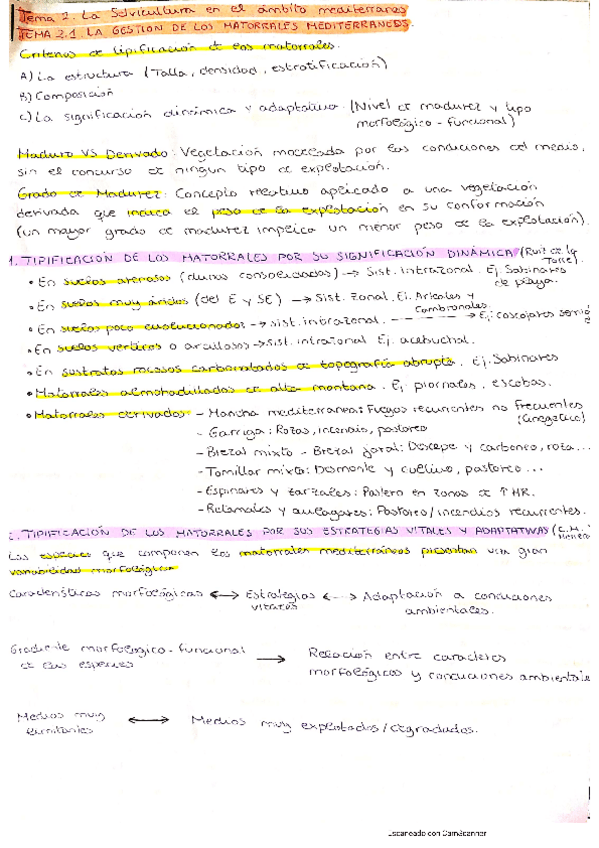 Tema 2. La Selvicultura en el ámbito mediterraneo
TEMA 2.1. LA GESTION DE LOS MATORRALES MEDITERRANEOS.
Criterios de tipificación de los matorrales.
A) La estructura (Talla, densidad, estratificación)
B) Composición
C) La significación dinámica y adaptativa (Nivel de madurez y tipo
morfológico - funcional)
Maduro VS Derivado: Vegetación modelada por las condiciones del medio,
sin el concurso de ningun tipo de explotación.
Grado de Madurez: Concepto relativo aplicado a una vegetación
derivada que indica el peso de la explotación en su conformación
(un mayor grado de madurez implica un menor peso de la explotación).
1. TIPIFICACIÓN DE LOS MATORRALES POR SU SIGNIFICACIÓN DINÁMICA (Ruiz de la
Torre).
• En suelos arenosos (dunas consolidadas) → Sist. intrazonal. Ej. Sabinares
de playa.
• En suelos muy áridos (del E y SE) → Sist. zonal. Ej. Arteales y
Cambronales.
• En suelos poco evolucionados → sist. intrazonal. → Ej: coscojares
• En suelos verticos o arcillosos → sist. intrazonal Ej. acebuchal.
• En sustratos rocosos carbonatados de topografía abrupta. Ej. Sabinares
• Matorrales almohadillados de alta montaña. Ej. piornales, escobas.
• Matorrales derivados - Mancha mediterranea: Fuegos recurrentes no frecuentes
(Cinegetica)
- Garriga: Rozas, incendios, pastoreo
- Brezal mixto - Brezal jaral: Descepe y carboneo, roza...
- Tomillar mixto: Desmonte y cultivo, pastoreo...
- Espinares y zarzales: Pastoreo en zonas de ↑ HR.
- Retamales y aulagares: Pastoreo/incendios recurrentes.
2. TIPIFICACIÓN DE LOS MATORRALES POR SUS ESTRATEGIAS VITALES Y ADAPTATIVAS (C.M. Herrera
Las especies que componen los matorrales mediterráneos presentan una gran
variabilidad morfológica
Características morfológicas ↔ Estrategias vitales ↔ Adaptación a condiciones
ambientales.
Gradiente morfologico-funcional
de las especies → Relación entre caracteres
morfológicos y condiciones ambientale
Medios muy
limitantes ↔ Medios muy explotados/degradados.
Escaneado con CamScanner